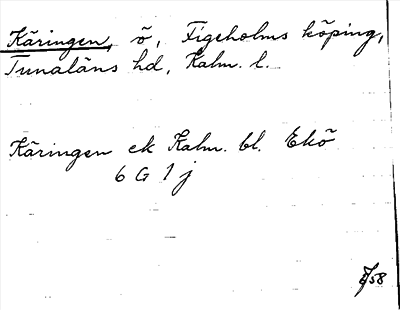 Käringen, ö, Figeholms köping,
Tunaläns hd, Kalm. l.
Käringen ek Kalm. bl. Ekö
6 G 1 j